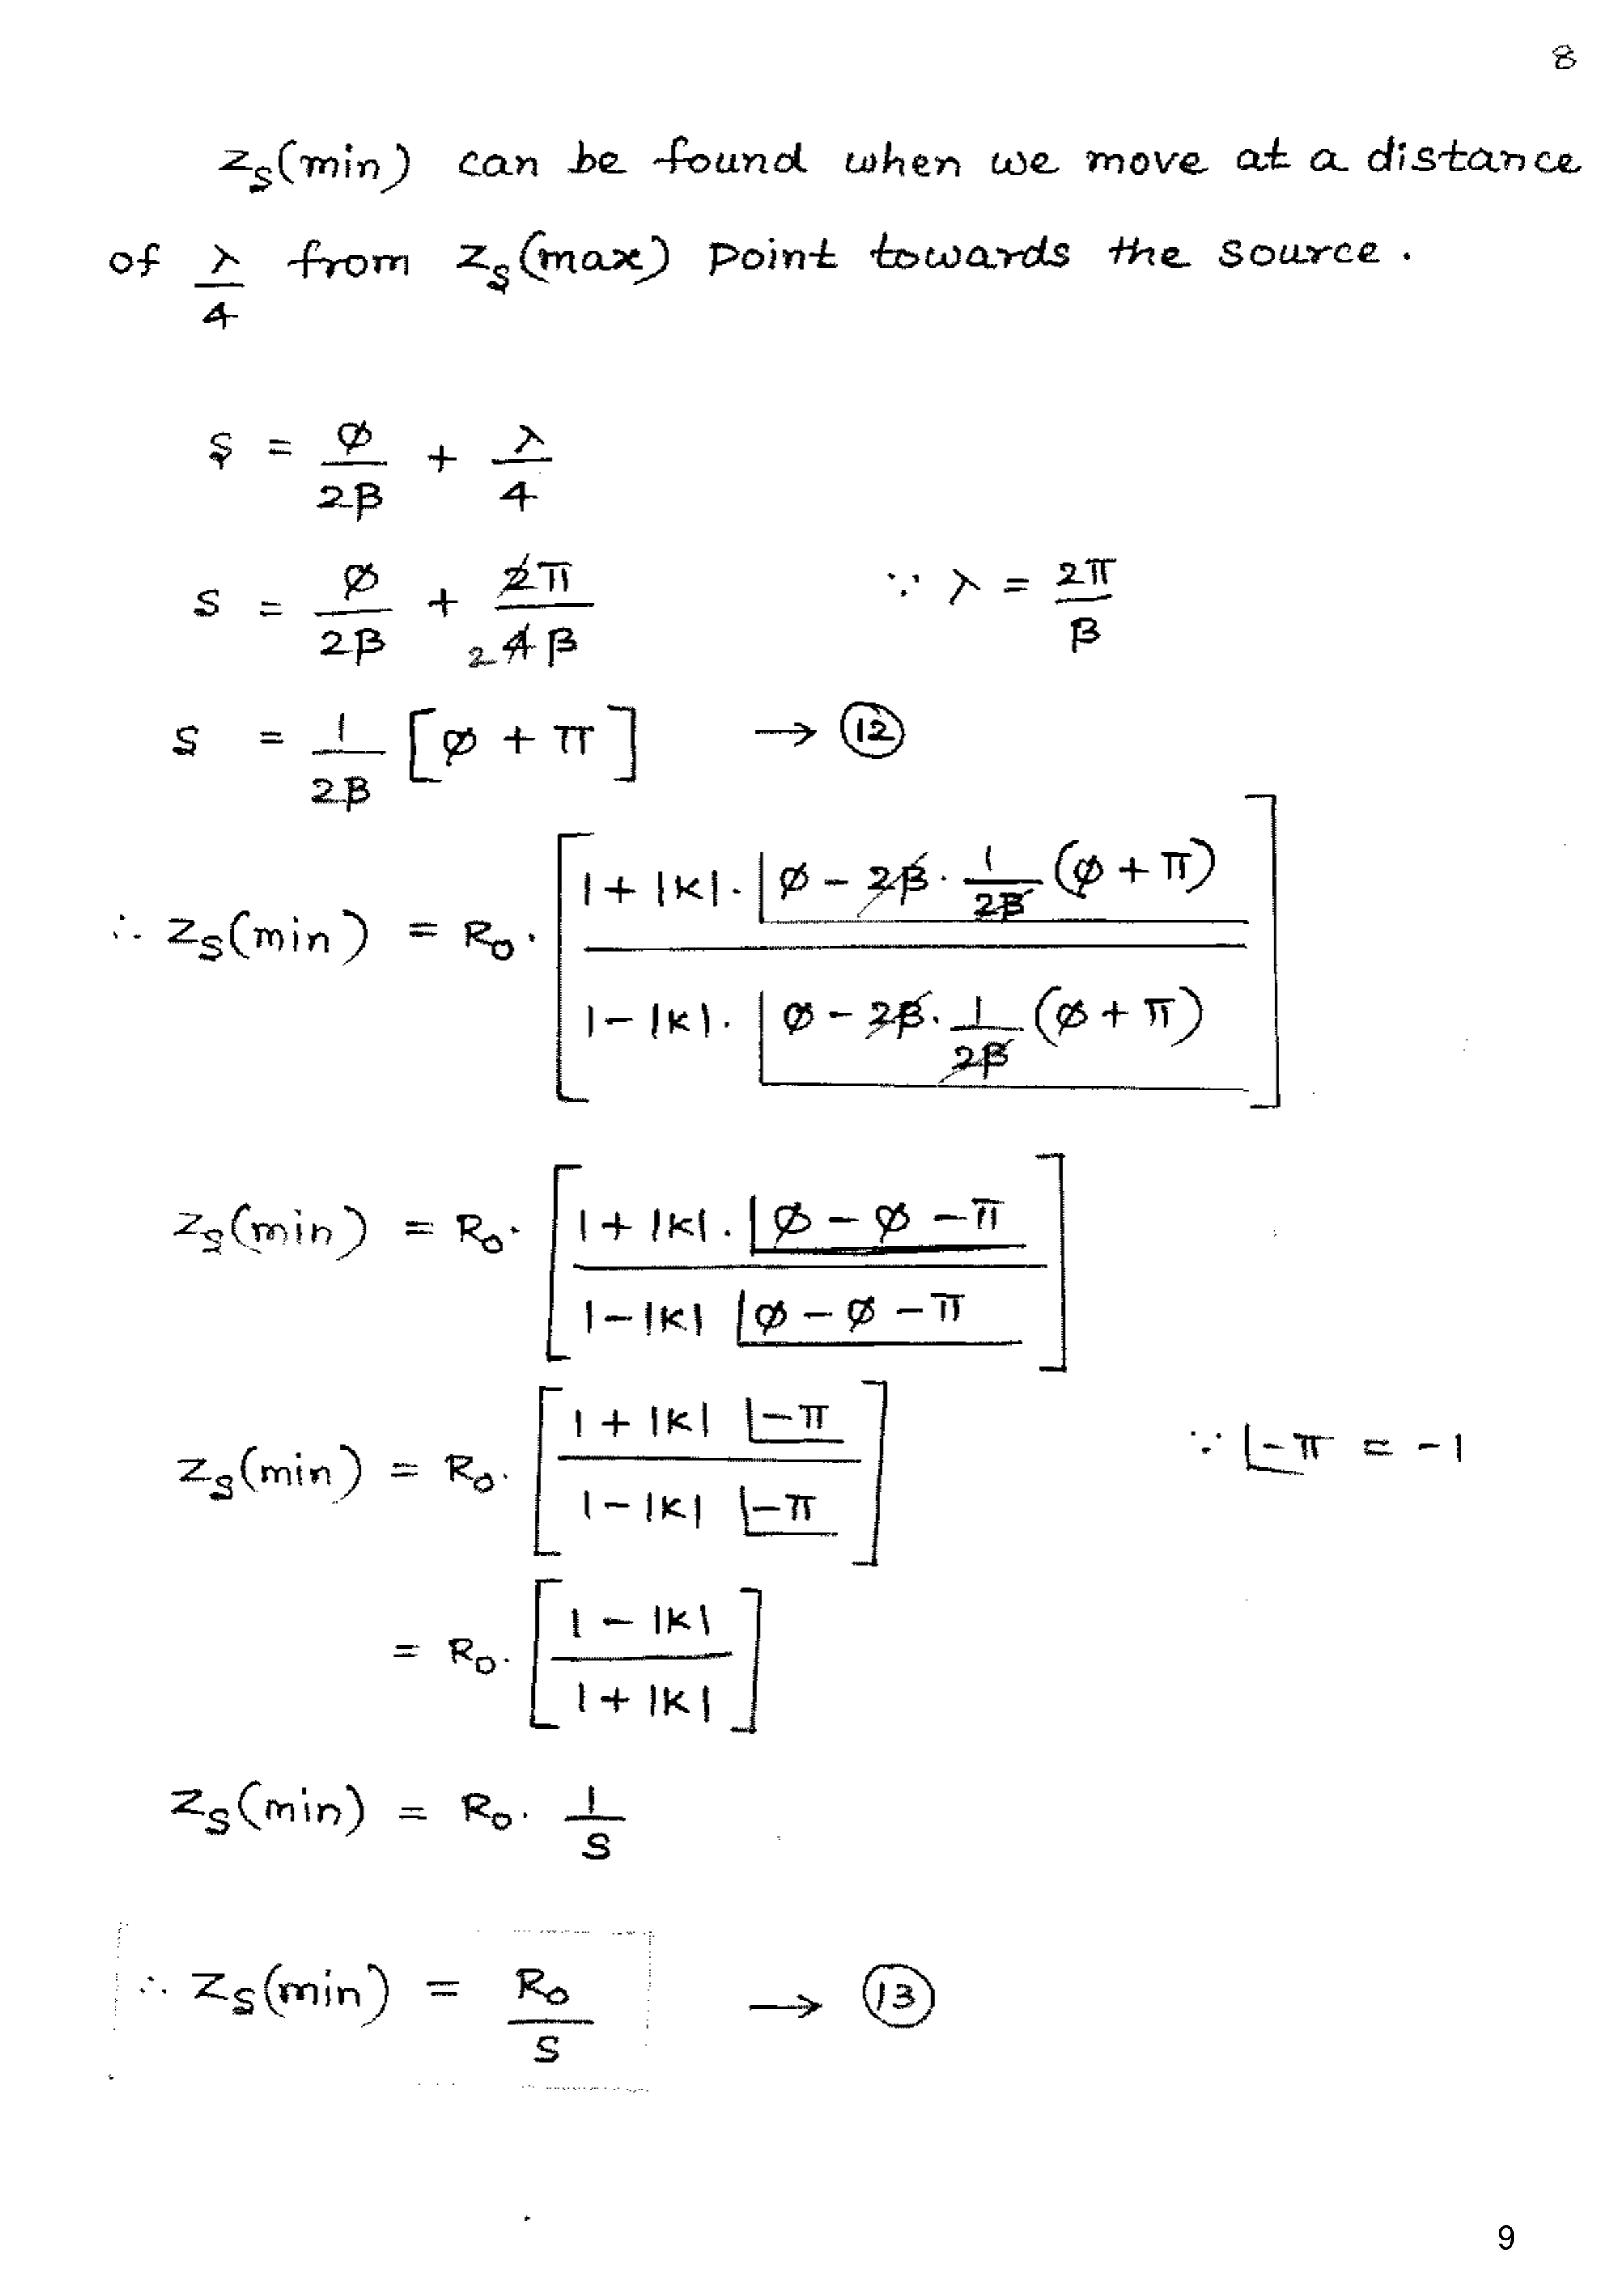 8
Zs(min) can be found when we move at a distance
of λ/4 from Zs(max) point towards the source.
S = ø/2β + λ/4
S = ø/2β + 2π/4β 2 ∵ λ = 2π/β
S = 1/2β [ø + π] → (12)
∴ Zs(min) = R₀. [1 + |K|. ∠ø - 2β. 1/2β (ø + π) / 1 - |K|. ∠ø - 2β. 1/2β (ø + π)]
Zs(min) = R₀. [1 + |K|. ∠ø - ø - π / 1 - |K| ∠ø - ø - π]
Zs(min) = R₀. [1 + |K| ∠-π / 1 - |K| ∠-π] ∵ ∠-π = -1
= R₀. [1 - |K| / 1 + |K|]
Zs(min) = R₀. 1/S
∴ Zs(min) = R₀/S → (13)
9